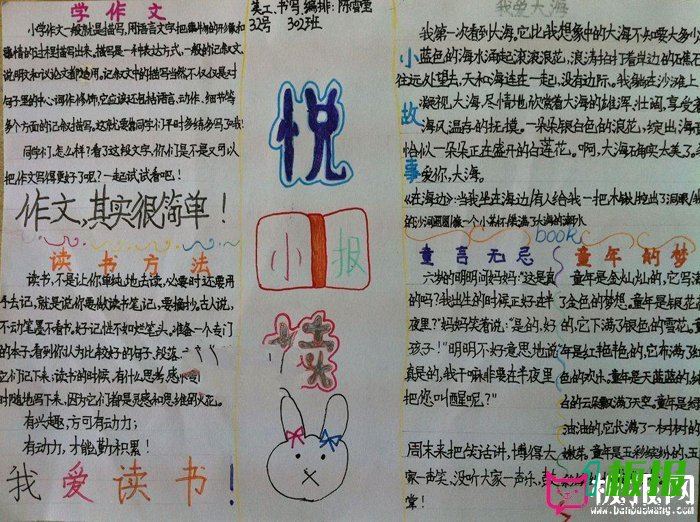 学作文
小学作文一般就是描写,用语言文字把
情的过程描写出来,描写是一种表达方式,一般的记叙文
说明文和议论文都适用。记叙文中的描写当然不仅仅是对
句子里的中心词作修饰,它应该还包括语言、动作、细节等
多个方面的记叙描写。这就要靠同学们平时多练多写了哦!
同学们,怎么样?看了这段文字,你们是不是又可以
把作文写得更好了呢?一起试试看吧!
作文,其实很简单!
读书方法
读书,不是让你单纯地去读,必要时还要用
手去记,就是说你要做读书笔记,要摘抄。古人说,
不动笔墨不看书。好记性不如烂笔头。准备一个专门
的本子,看到你认为比较好的句子、段落
它们记下来;读书的时候,有什么思考感
时随地写下来,因为它们都是灵感和思维的火花。
有兴趣,方可有动力;
有动力,才能勤积累!
我爱读书!
美工、书写、编排:陈雪莹
32号 302班
悦
小报
读
我爱大海
我第一次看到大海,它比我想象中的大海不知要大多少
蓝色的海水涌起滚滚浪花,浪涛拍打着岸边的石焦石
往远处望去,天和海连在一起,没有边际。我躺在沙滩上
凝视大海,尽情地欣赏着大海的雄浑、壮阔,享受着
海风温存的抚摸。一朵朵银白色的浪花,绽出海
恰似一朵朵正在盛开的白莲花。啊,大海确实太美了,
爱你,大海。
小故事
《在海边》:当我坐在海边,有人给我一把木锹挖出了洞眼
的沙洞圆圆像一个小茶杯装满了大海的潮水
book
童言无忌
六岁的明明问妈妈:“这是真
的吗?我出生的时候正好在半
夜里?”妈妈笑着说:“是的,好
孩子!”明明不好意思地说
真是的,我干嘛非要在半夜里
把您叫醒呢?”
周末来把笑话讲,博得大
家一声笑,没听大家一声乐,
堂!
童年的梦
童年是金灿灿的,它写满
了金色的梦想。童年是银花
的,它下满了银色的雪花。童
年是红艳艳的,它布满了
色的欢乐。童年是天蓝蓝的,
白的云朵飘满了天空。童年是绿
油油的,它长满了一树树的
嫩芽。童年是五彩缤纷的,五
板报网
www.banbaowang.com